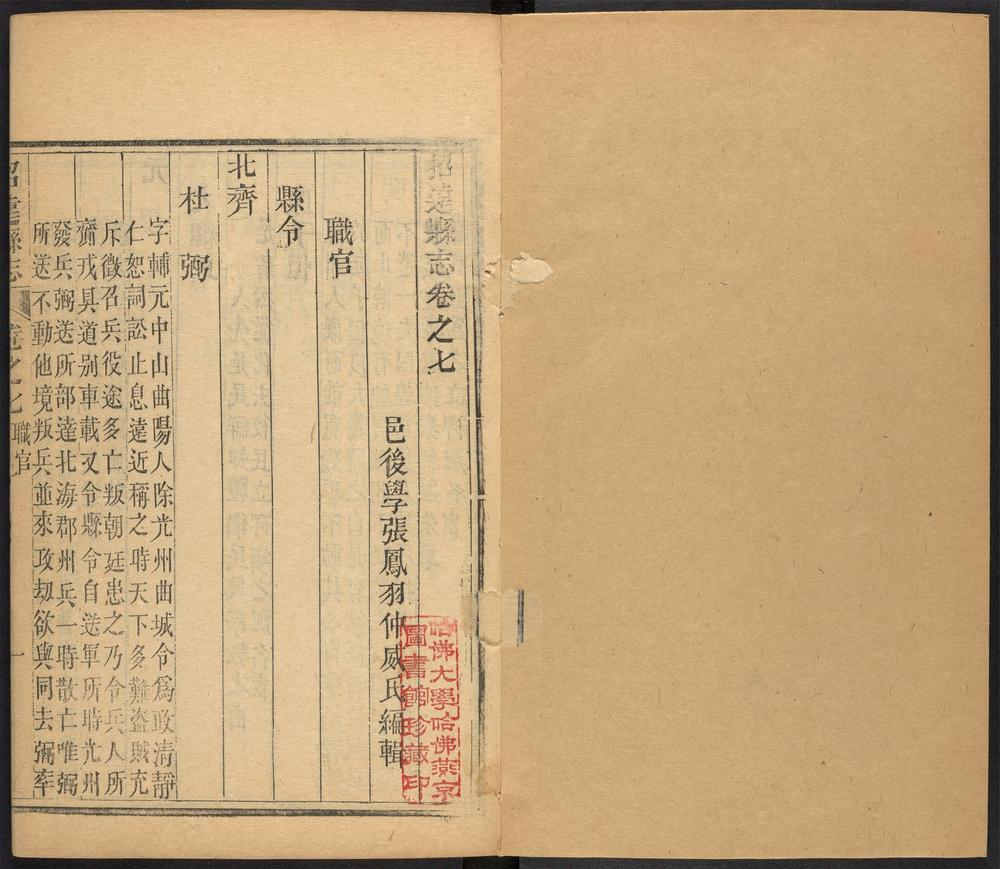 招遠縣志卷之七
邑後學張鳳羽仲威氏編輯
職官
縣令
北齊
杜弼
字輔元中山曲陽人除光州曲城令爲政清靜
仁恕詞訟止息遠近稱之時天下多難盜賊充
斥徵召兵役途多亡叛朝廷患之乃令兵人所
齎戎具道别車載又令縣令自送軍所時光州
發兵弼送所部達北海郡州兵一時散亡唯弼
所送不動他境叛兵並來攻劫欲與同去弼率
招遠縣志
卷之七
職官
一
哈佛大學哈佛燕京
圖書館珍藏印